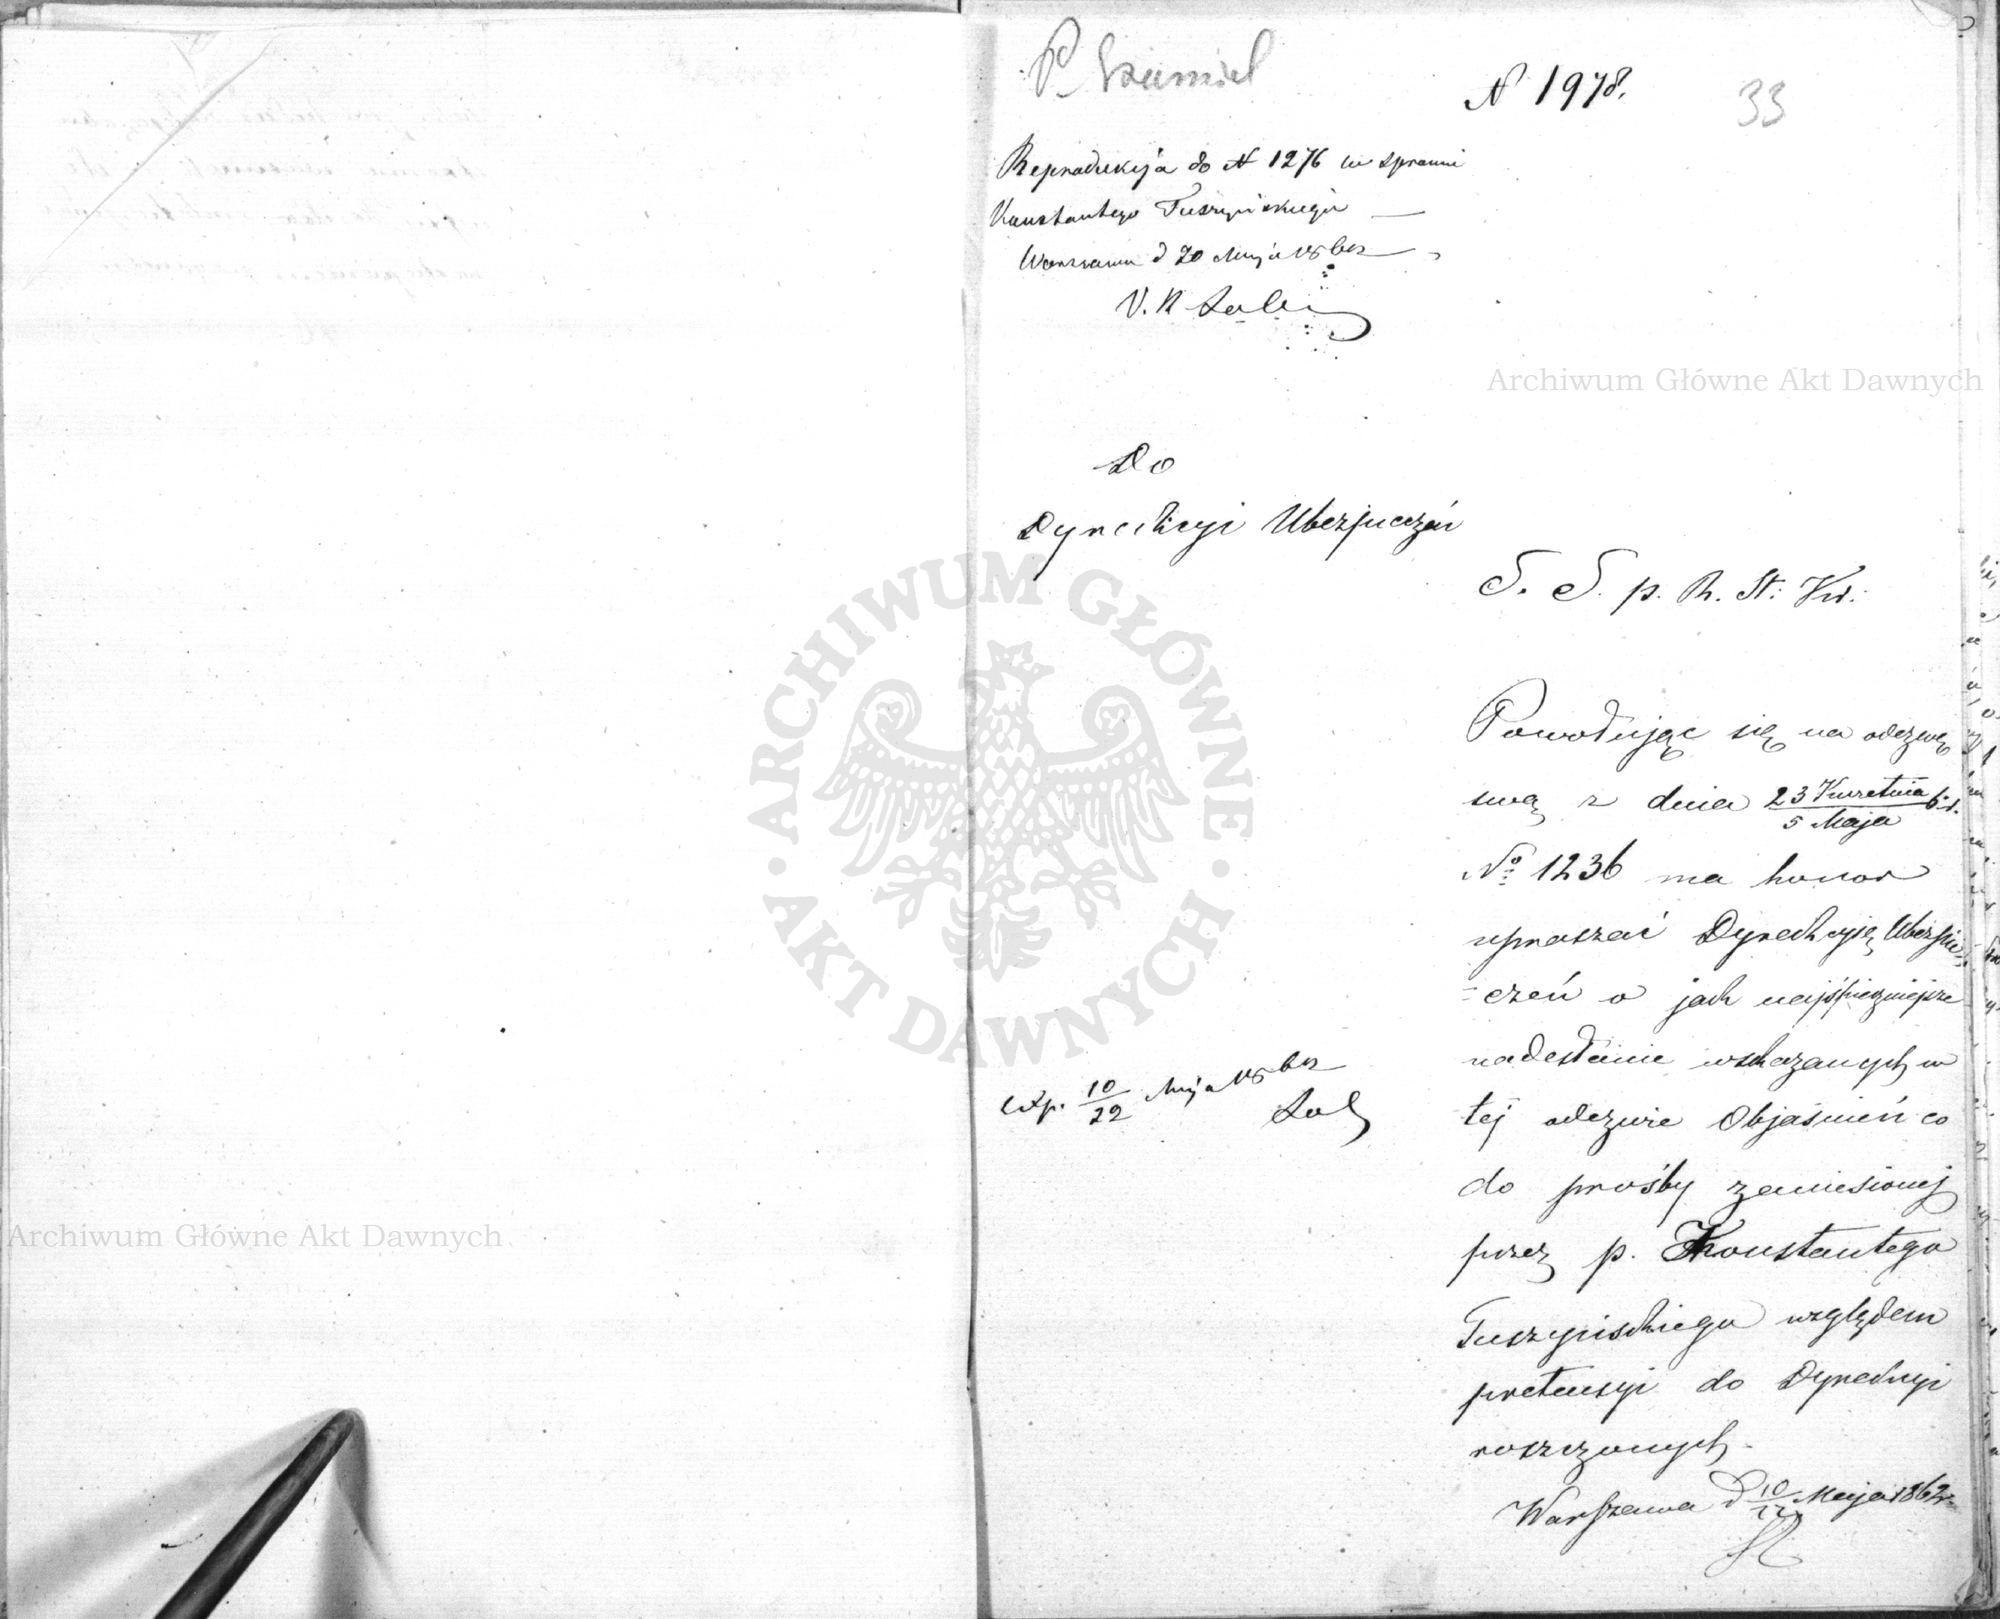 N 1978.
33
Reprodukcyja do N 1276 w sprawie
Konstantego Tuszyńskiego
Warszawa d 20 Maja
Do
Dyrekcyi Ubezpieczeń
S. S. p. R. St: Kr:
Powołując się na odezwę
swą z dnia 23 Kwietnia b.r.
5 Maja
No 1236 ma honor
upraszać Dyrekcyję Ubezpie-
czeń o jak najśpieszniejsze
nadesłanie wskazanych w
tej odezwie Objaśnień co
do prośby zaniesionej
przez p. Konstantego
Tuszyńskiego względem
pretensyi do Dyrekcyi
roszczonych.
Warszawa d 10/22 Maja 1862 r.
exp. 10/22 Maja
Archiwum Główne Akt Dawnych
ARCHIWUM GŁÓWNE · AKT DAWNYCH ·
Archiwum Główne Akt Dawnych